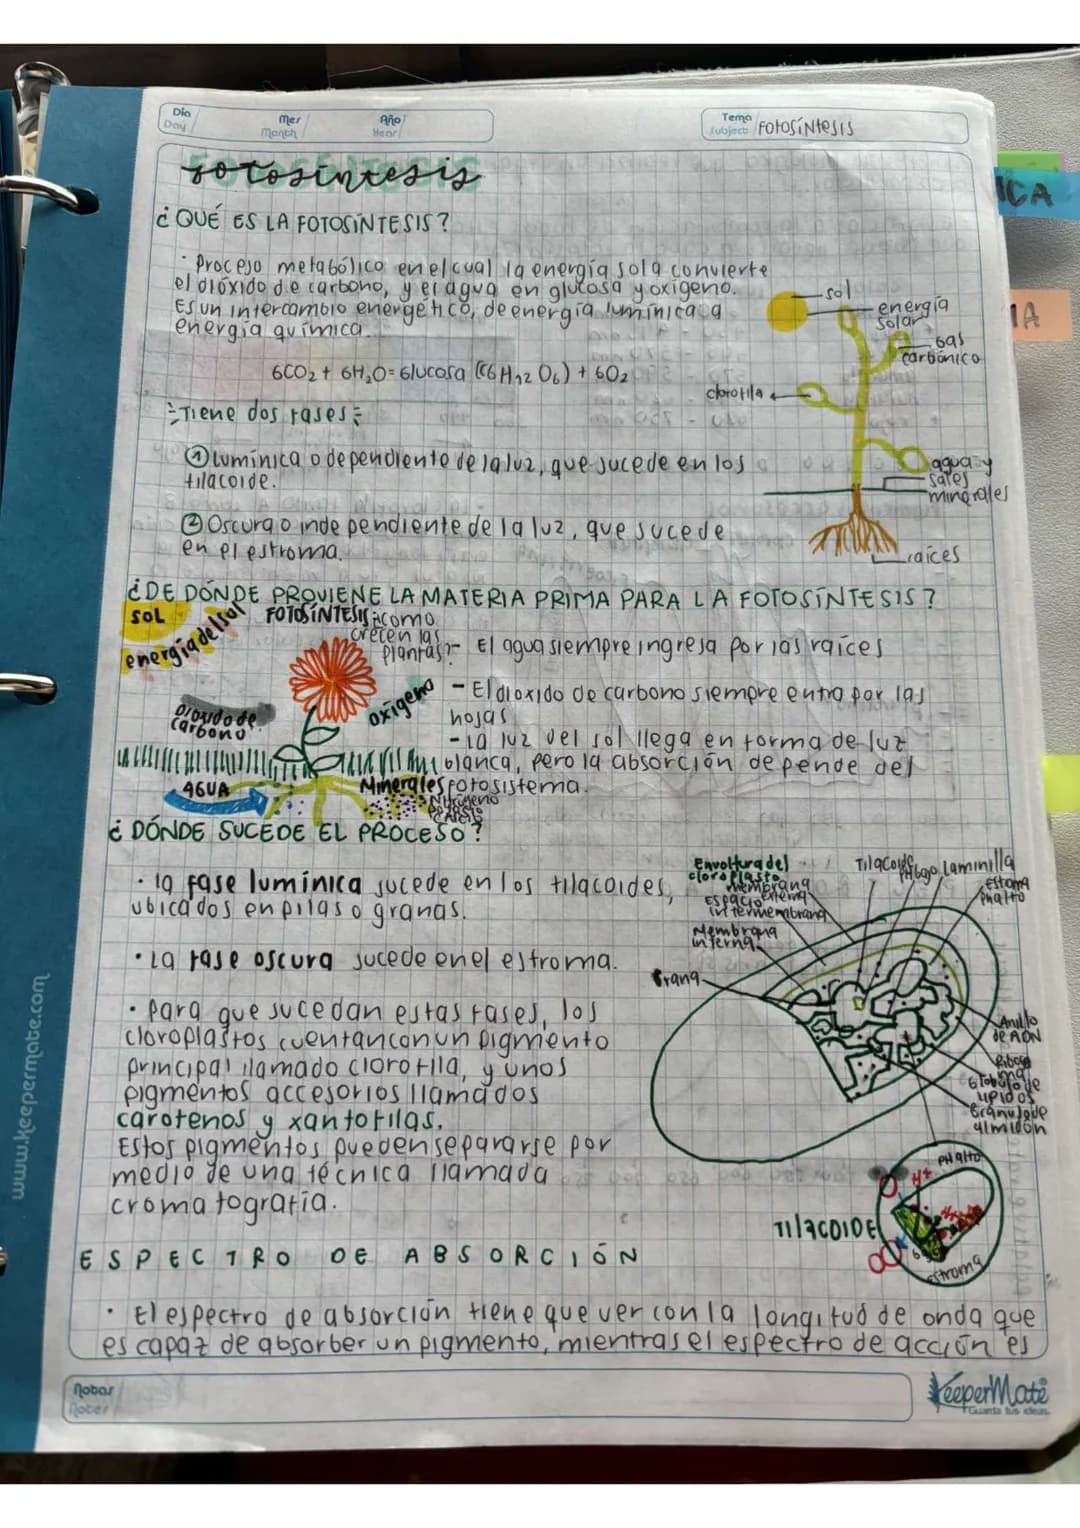 Día
Day
Mes
Month
Año
Year
Tema
Subject
FOTOSÍNTESIS
fotosíntesis
¿QUÉ ES LA FOTOSÍNTESIS?
· Proceso metabólico en el cual la energía sola convierte
el dióxido de carbono, y el agua en glucosa y oxígeno.
Es un intercambio energético, de energía lumínica a
energía química.
6CO2 + 6H2O = Glucosa (C6H12O6) + 6O2
Tiene dos fases:
① Lumínica o dependiente de la luz, que sucede en los
tilacoide.
② Oscura o independiente de la luz, que sucede
en el estroma.
sol
energía
solar
Gas
carbónico
clorofila
agua y
sales
minerales
raíces
¿DE DÓNDE PROVIENE LA MATERIA PRIMA PARA LA FOTOSÍNTESIS?
SOL
energía del sol
FOTOSÍNTESIS ¿cómo
crecen las
plantas?
Dióxido de
carbono
oxígeno
AGUA
Minerales
- El agua siempre ingresa por las raíces
- El dioxido de carbono siempre entra por las
hojas
- La luz del sol llega en forma de luz
blanca, pero la absorción depende del
fotosistema.
¿DÓNDE SUCEDE EL PROCESO?
· la fase lumínica sucede en los tilacoides,
ubicados en pilas o granas.
· La fase oscura sucede en el estroma.
· Para que sucedan estas fases, los
cloroplastos cuentan con un pigmento
principal llamado clorofila, y unos
pigmentos accesorios llamados
carotenos y xantofilas.
Estos pigmentos pueden separarse por
medio de una técnica llamada
cromatografía.
Envoltura del
cloroplasto
membrana
externa
Espacio
intermembrana
Membrana
interna
Grana
Tilacoide
PH bajo
Laminilla
estoma
PH alto
Anillo
de ADN
Ribosoma
Glóbulo de
lípidos
Gránulo de
almidón
TILACOIDE
PH alto
H+
estroma
ESPECTRO DE ABSORCIÓN
· El espectro de absorción tiene que ver con la longitud de onda que
es capaz de absorber un pigmento, mientras el espectro de acción es
Notas
Notes
KeeperMate
Guarda tus ideas
www.keepermate.com
ICA
IA